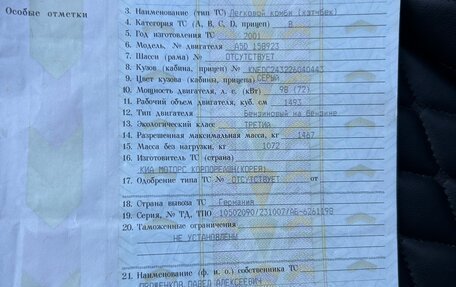 Особые отметки
3. Наименование (тип ТС) Легковой комби (хэтчбек)
4. Категория ТС (А, В, С, D, прицеп) В
5. Год изготовления ТС 2001
6. Модель, № двигателя A5D 158923
7. Шасси (рама) № ОТСУТСТВУЕТ
8. Кузов (кабина, прицеп) № KNEDC243226040443
9. Цвет кузова (кабины, прицепа) СЕРЫЙ
10. Мощность двигателя, л. с. (кВт) 98 (72)
11. Рабочий объем двигателя, куб. см 1493
12. Тип двигателя Бензиновый на бензине
13. Экологический класс ТРЕТИЙ
14. Разрешенная максимальная масса, кг 1467
15. Масса без нагрузки, кг 1072
16. Изготовитель ТС (страна)
КИА МОТОРС КОРПОРЕЙШН(КОРЕЯ)
17. Одобрение типа ТС № ОТСУТСТВУЕТ от
18. Страна вывоза ТС Германия
19. Серия, № ТД, ТПО 10502090/231007/АБ-6261198
20. Таможенные ограничения
НЕ УСТАНОВЛЕНЫ
21. Наименование (ф. и. о.) собственника ТС
ПАВЕЛ АЛЕКСЕЕВИЧ